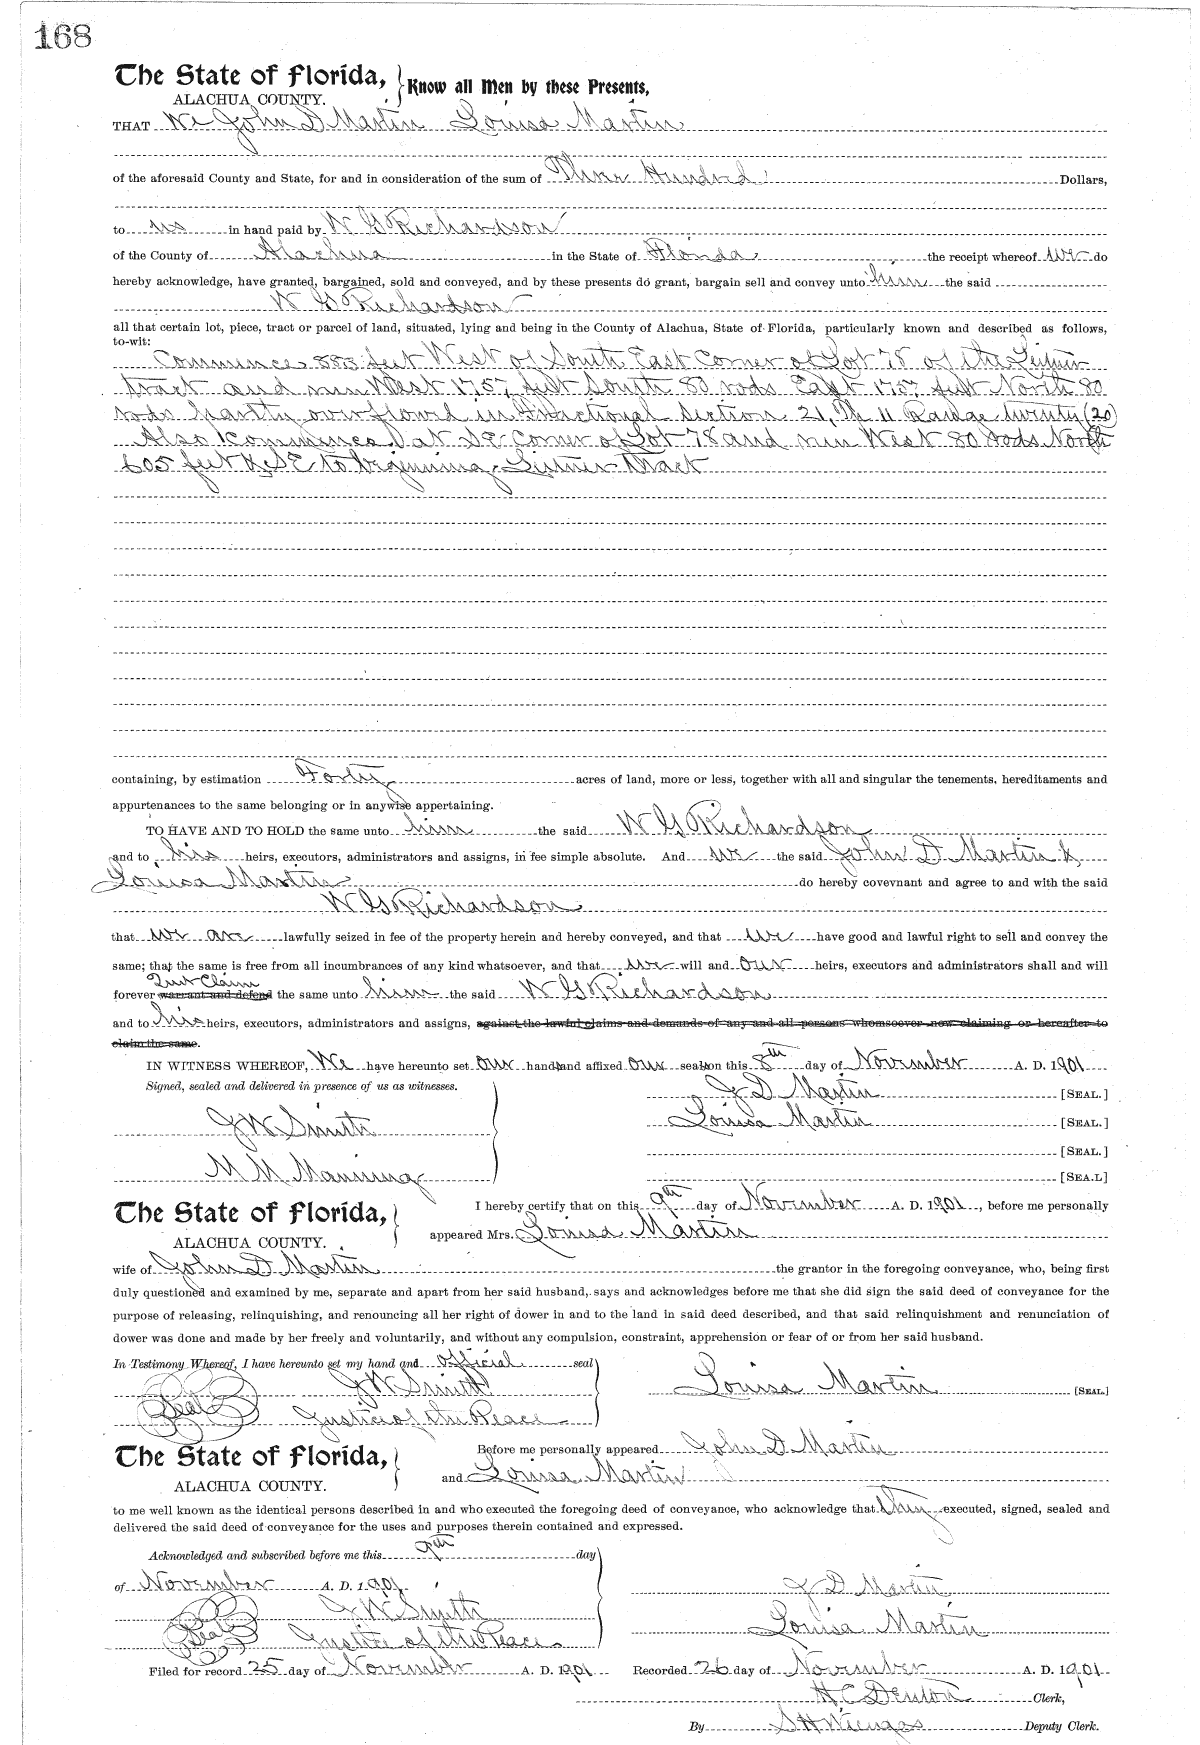 168
The State of Florida,
ALACHUA COUNTY.
Know all Men by these Presents,
THAT We John D Martin Louisa Martin
of the aforesaid County and State, for and in consideration of the sum of Three Hundred Dollars,
to us in hand paid by W G Richardson
of the County of Alachua in the State of Florida the receipt whereof we do
hereby acknowledge, have granted, bargained, sold and conveyed, and by these presents do grant, bargain sell and convey unto him the said
W G Richardson
all that certain lot, piece, tract or parcel of land, situated, lying and being in the County of Alachua, State of Florida, particularly known and described as follows,
to-wit:
Commence 883 feet West of South East Corner of Lot 78 of the
tract and run West 1757 feet South 80 rods East 1757 feet North 80
rods partly overflowd in Fractional Section 21, Tp 11 Range twenty (20)
Also Commence at SE Corner of Lot 78 and run West 80 rods North
605 feet SE to beginning Tract
containing, by estimation Forty acres of land, more or less, together with all and singular the tenements, hereditaments and
appurtenances to the same belonging or in anywise appertaining.
TO HAVE AND TO HOLD the same unto him the said W G Richardson
and to his heirs, executors, administrators and assigns, in fee simple absolute. And we the said John D Martin &
Louisa Martin do hereby covevnant and agree to and with the said
W G Richardson
that we are lawfully seized in fee of the property herein and hereby conveyed, and that we have good and lawful right to sell and convey the
same; that the same is free from all incumbrances of any kind whatsoever, and that we will and our heirs, executors and administrators shall and will
Quit Claim
forever warrant and defend the same unto him the said W G Richardson
and to his heirs, executors, administrators and assigns, against the lawful claims and demands of any and all persons whomsoever now claiming or hereafter to
claim the same.
IN WITNESS WHEREOF, We have hereunto set our hand and affixed our seal on this 8th day of November A. D. 1901
Signed, sealed and delivered in presence of us as witnesses.
J D Martin [SEAL.]
J W Smith
Louisa Martin [SEAL.]
[SEAL.]
M M Manning
[SEA.L]
The State of Florida,
ALACHUA COUNTY.
I hereby certify that on this 9th day of November A. D. 1901, before me personally
appeared Mrs. Louisa Martin
wife of John D Martin the grantor in the foregoing conveyance, who, being first
duly questioned and examined by me, separate and apart from her said husband, says and acknowledges before me that she did sign the said deed of conveyance for the
purpose of releasing, relinquishing, and renouncing all her right of dower in and to the land in said deed described, and that said relinquishment and renunciation of
dower was done and made by her freely and voluntarily, and without any compulsion, constraint, apprehension or fear of or from her said husband.
In Testimony Whereof, I have hereunto set my hand and official seal
J W Smith
Louisa Martin [SEAL.]
Seal Justice of the Peace
The State of Florida,
ALACHUA COUNTY.
Before me personally appeared John D Martin
and Louisa Martin
to me well known as the identical persons described in and who executed the foregoing deed of conveyance, who acknowledge that they executed, signed, sealed and
delivered the said deed of conveyance for the uses and purposes therein contained and expressed.
Acknowledged and subscribed before me this 9th day
of November A. D. 1901.
J D Martin
J W Smith
Louisa Martin
Seal Justice of the Peace
Filed for record 25 day of November A. D. 1901
Recorded 26 day of November A. D. 1901
H C Denton Clerk,
By S H Wienges Deputy Clerk.